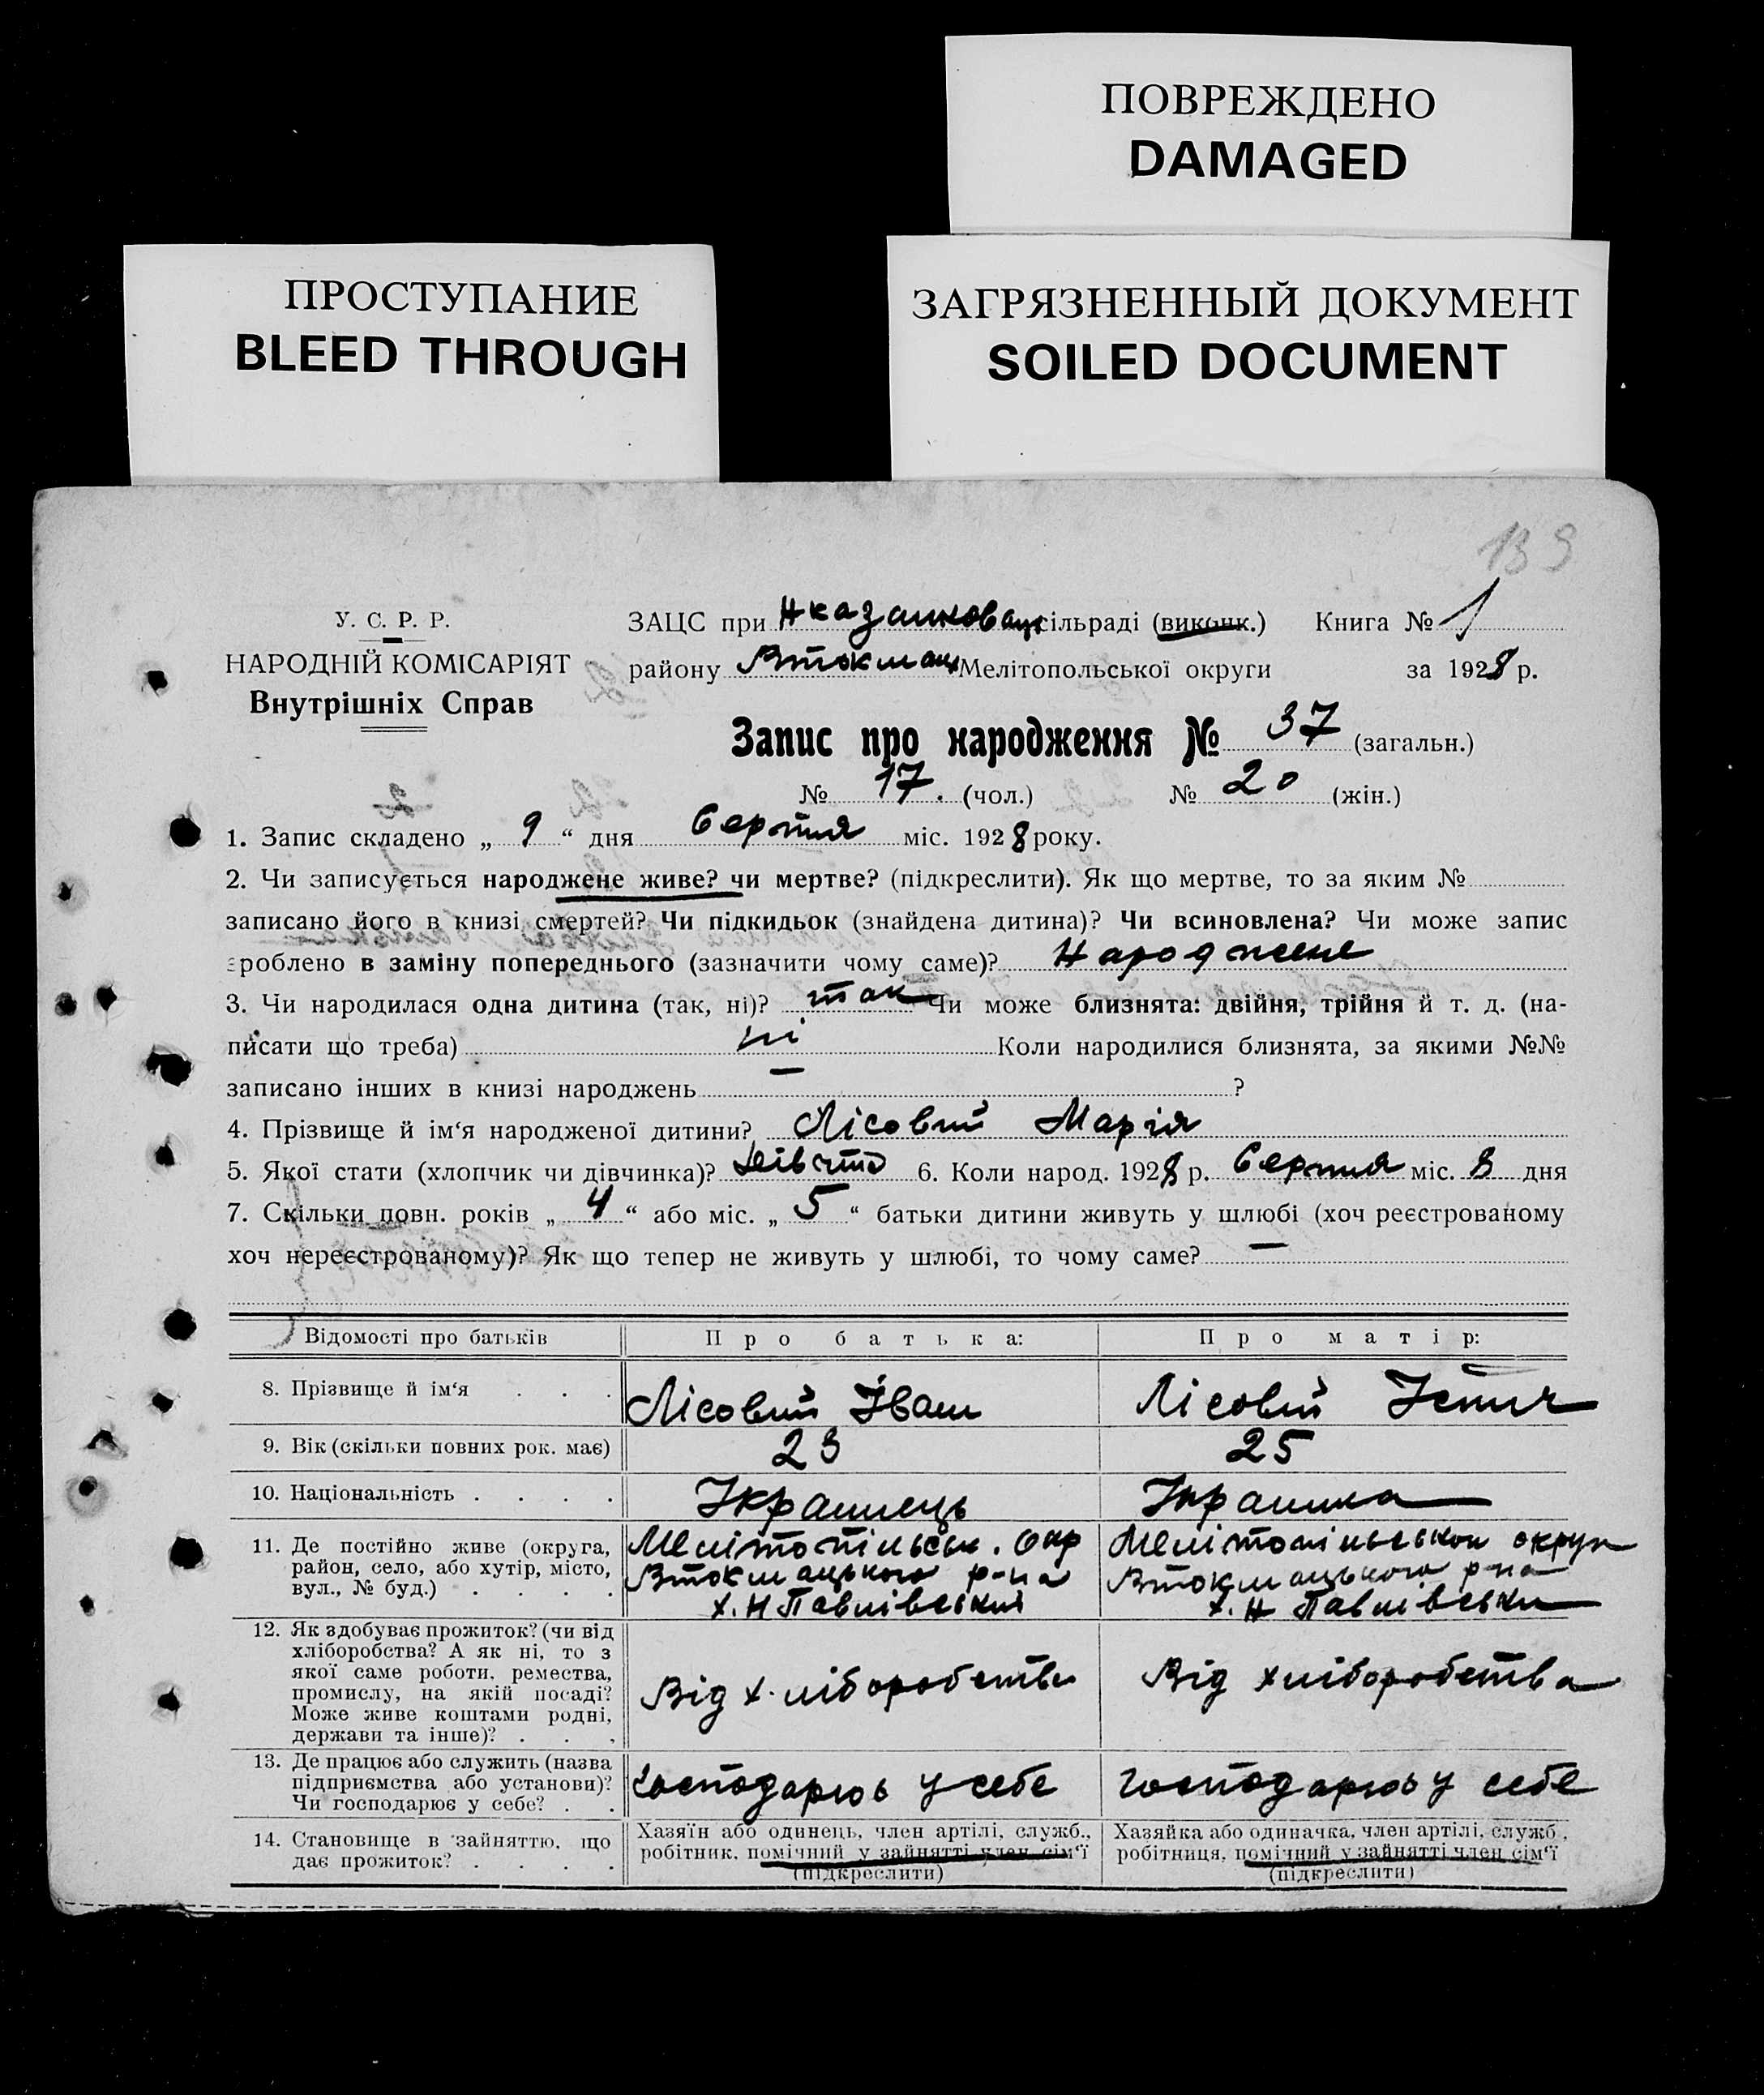 ПОВРЕЖДЕНО
DAMAGED
ПРОСТУПАНИЕ
BLEED THROUGH
ЗАГРЯЗНЕННЫЙ ДОКУМЕНТ
SOILED DOCUMENT
У. С. Р. Р.
НАРОДНІЙ КОМІСАРІЯТ
Внутрішніх Справ
ЗАЦС при сільраді (виконк.) Книга № 1
району Втокмац Мелітопольської округи за 1928 р.
Запис про народження № 37 (загальн.)
№ 17. (чол.) № 20 (жін.)
1. Запис складено „ 9 “ дня Серпня міс. 1928 року.
2. Чи записується народжене живе? чи мертве? (підкреслити). Як що мертве, то за яким №
записано його в книзі смертей? Чи підкидьок (знайдена дитина)? Чи всиновлена? Чи може запис
зроблено в заміну попереднього (зазначити чому саме)? Народжене
3. Чи народилася одна дитина (так, ні)? так Чи може близнята: двійня, трійня й т. д. (на-
писати що треба) ні Коли народилися близнята, за якими №№
записано інших в книзі народжень — ?
4. Прізвище й ім‘я народженої дитини? Лісовий Марія
5. Якої стати (хлопчик чи дівчинка)? 6. Коли народ. 1928 р. Серпня міс. 8 дня
7. Скільки повн. років „ 4 “ або міс. „ 5 “ батьки дитини живуть у шлюбі (хоч реєстрованому
хоч нереєстрованому)? Як що тепер не живуть у шлюбі, то чому саме? —
Відомості про батьків Про батька: Про матір:
8. Прізвище й ім‘я . . . Лісовий Іван Лісовий
9. Вік (скільки повних рок. має) 23 25
10. Національність . . . . Українець Українка
11. Де постійно живе (округа,
район, село, або хутір, місто,
вул., № буд.) . . . .
Мелітопільськ. Окр
Втокмацького р-на
х. Н Павлівський
Мелітопільськои округи
Втокмацького р-на
х. Н Павлівськи
12. Як здобуває прожиток? (чи від
хліборобства? А як ні, то з
якої саме роботи, ремества,
промислу, на якій посаді?
Може живе коштами родні,
держави та інше)? . . .
Від хліборобства
Від хліборобства
13. Де працює або служить (назва
підприємства або установи)?
Чи господарює у себе? . .
Господарює у себе
господарює у себе
14. Становище в зайняттю, що
дає прожиток? . . . .
Хазяїн або одинець, член артілі, служб.,
робітник, помічний у зайнятті член сім‘ї
(підкреслити)
Хазяйка або одиначка, член артілі, служб.,
робітниця, помічний у зайнятті член сім‘ї
(підкреслити)